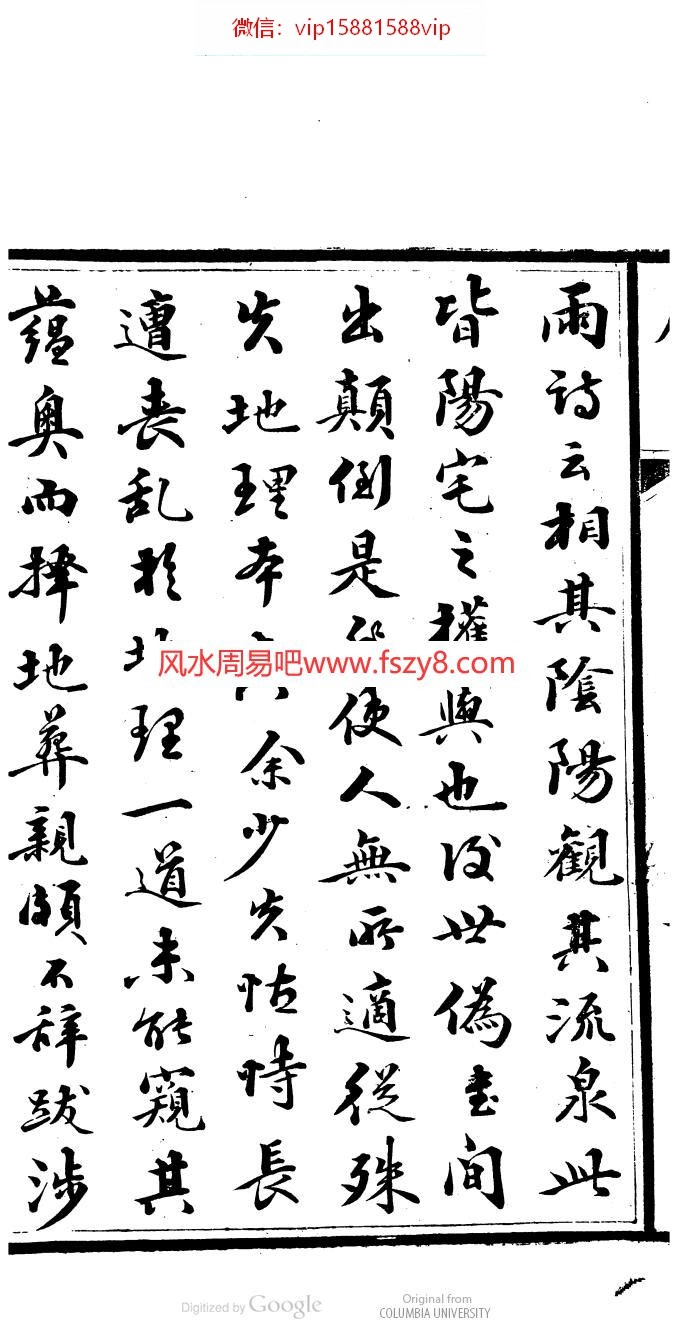 微信：vip15881588vip
雨詩云相其陰陽觀其流泉此
皆陽宅之權輿也後世偽書間
出顛倒是使人無所適從殊
失地理本余少失怙恃長
遭喪乱於地理一道未能窺其
蘊奧而擇地葬親頗不辞跋涉
风水周易吧www.fszy8.com
Digitized by Google
Original from
COLUMBIA UNIVERSITY